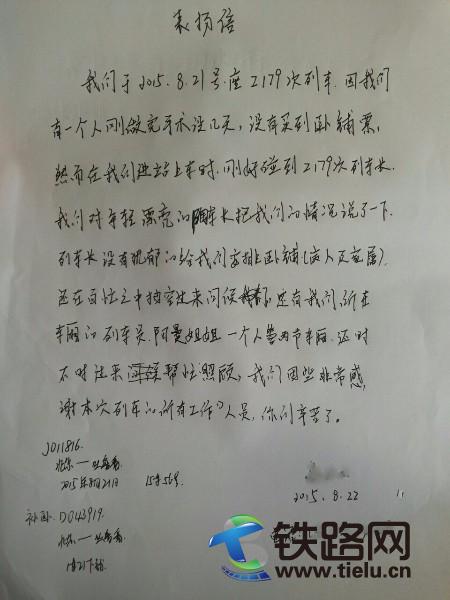 表扬信
我们于2015.8.21号.座Z179次列车.因我们
有一个人刚做完手术没几天,没有买到卧铺票,
然而在我们进站上车时.刚好碰到Z179次列车长.
我们对年轻漂亮的车长把我们的情况说了一下.
列车长没有犹郁的给我们安排卧铺(病人及家属).
还在百忙之中抽空出来问候.还有我们所在
车厢的列车员.阿曼姐姐一个人营两节车厢.还时
不时过来帮忙照顾,我们因些非常感,
谢本次列车的所有工作人员,你们辛苦了。
J011816.
2015年8月21日 15车56号
2015.8.22
补卧:D043919.
铁路网
www.tielu.cn